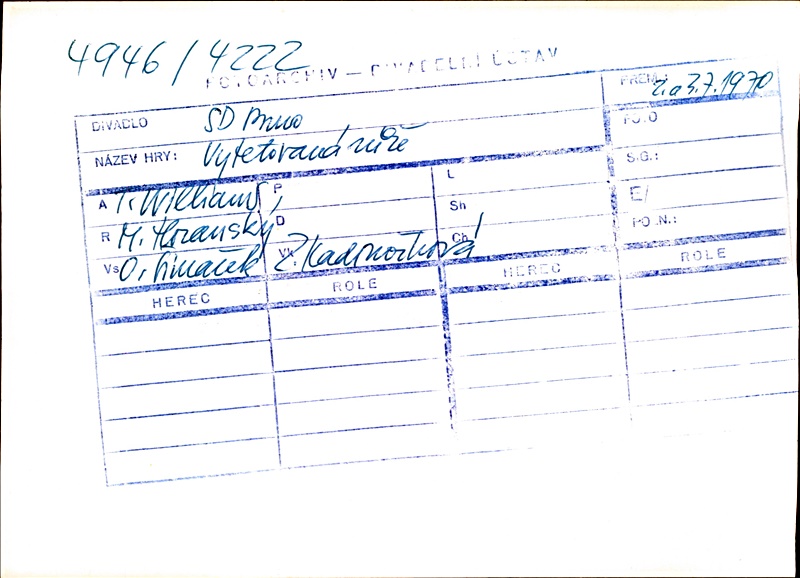 4946 / 4222
FOTOARCHIV — DIVADELNÍ ÚSTAV
DIVADLO SD Brno PREM.: 2. a 3.7.1970
NÁZEV HRY: Vytetovaná růže FOTO
A T. Williams P L SIG.:
R M. D Sh E/
Vs O. Šimáček Vk Z. Kadrnožková Ch PO .N.:
HEREC ROLE HEREC ROLE